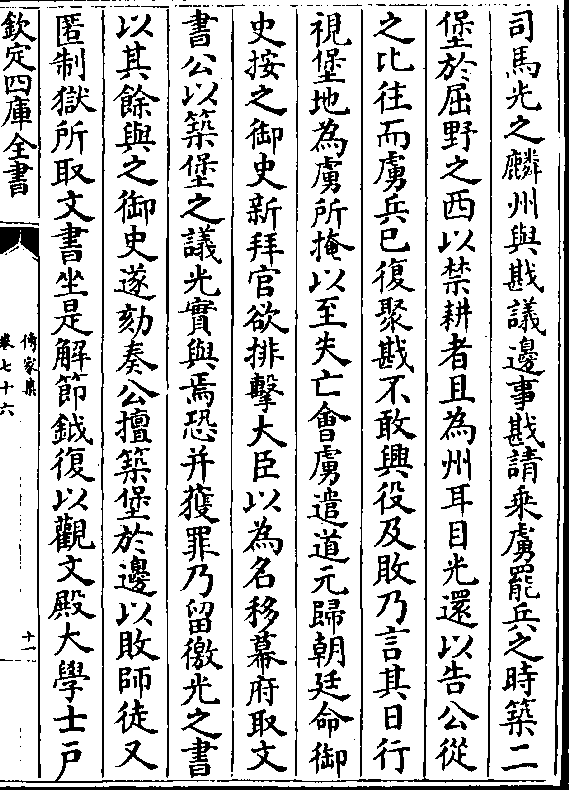 司馬光之麟州與戡議邊事戡請乗虜罷兵之時築二
堡於屈野之西以禁耕者且為州耳目光還以告公從
之比往而虜兵已復聚戡不敢興役及敗乃言其日行
視堡地為虜所掩以至失亡會虜遣道元歸朝廷命御
史按之御史新拜官欲排擊大臣以為名移幕府取文
書公以築堡之議光實與焉恐并獲罪乃留徼光之書
以其餘與之御史遂劾奏公擅築堡於邊以敗師徒又
匿制獄所取文書坐是解節鉞復以觀文殿大學士戸
欽定四庫全書
傳家集
卷七十六
十一